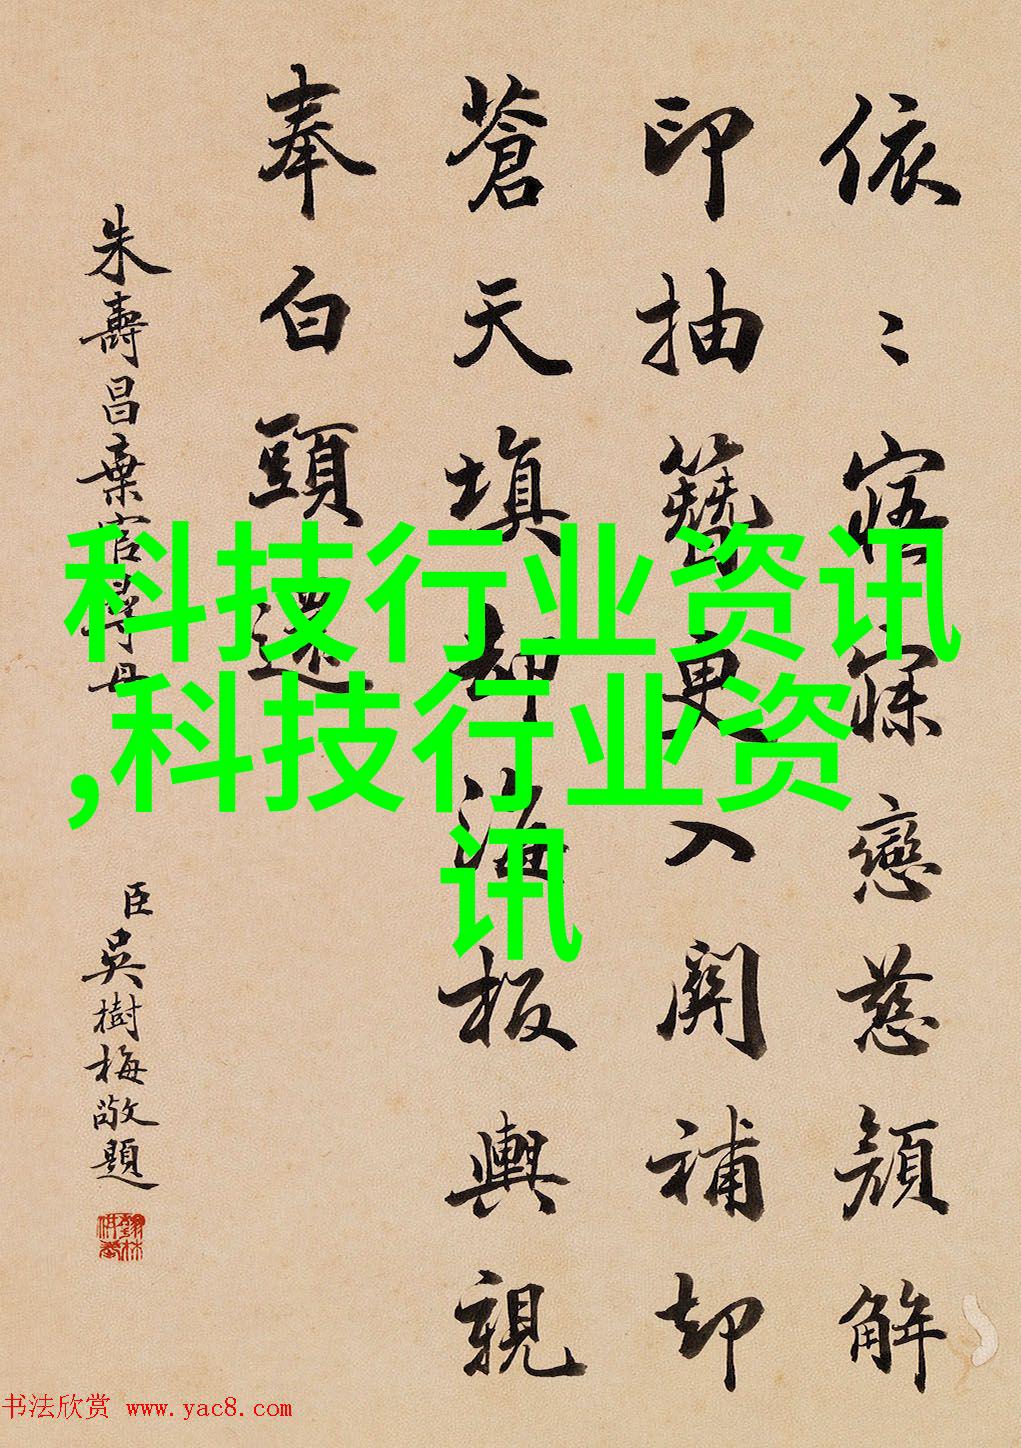 依〻寤寐戀慈顔解
印抽簪更入關補却
蒼天填却海板輿親
奉白頭還
朱壽昌棄官尋母
臣吳樹梅敬題
科技行业资讯
,科技行业资
讯
书法欣赏 www.yac8.com